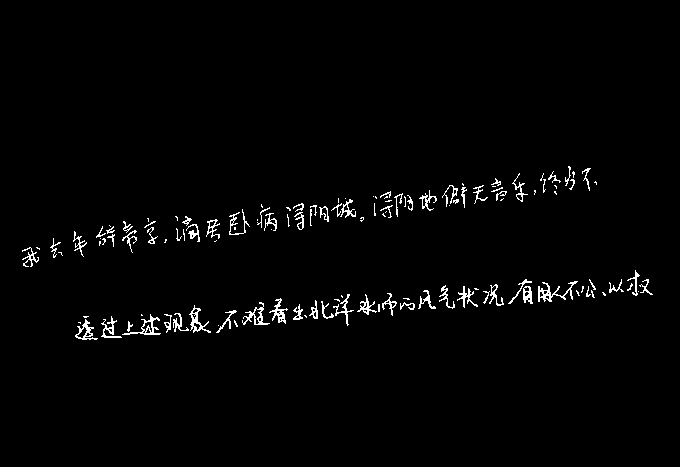 我去年辞帝京,谪居卧病浔阳城。浔阳地僻无音乐,终岁不
透过上述现象,不难看出北洋水师的风气状况,有不公、以权